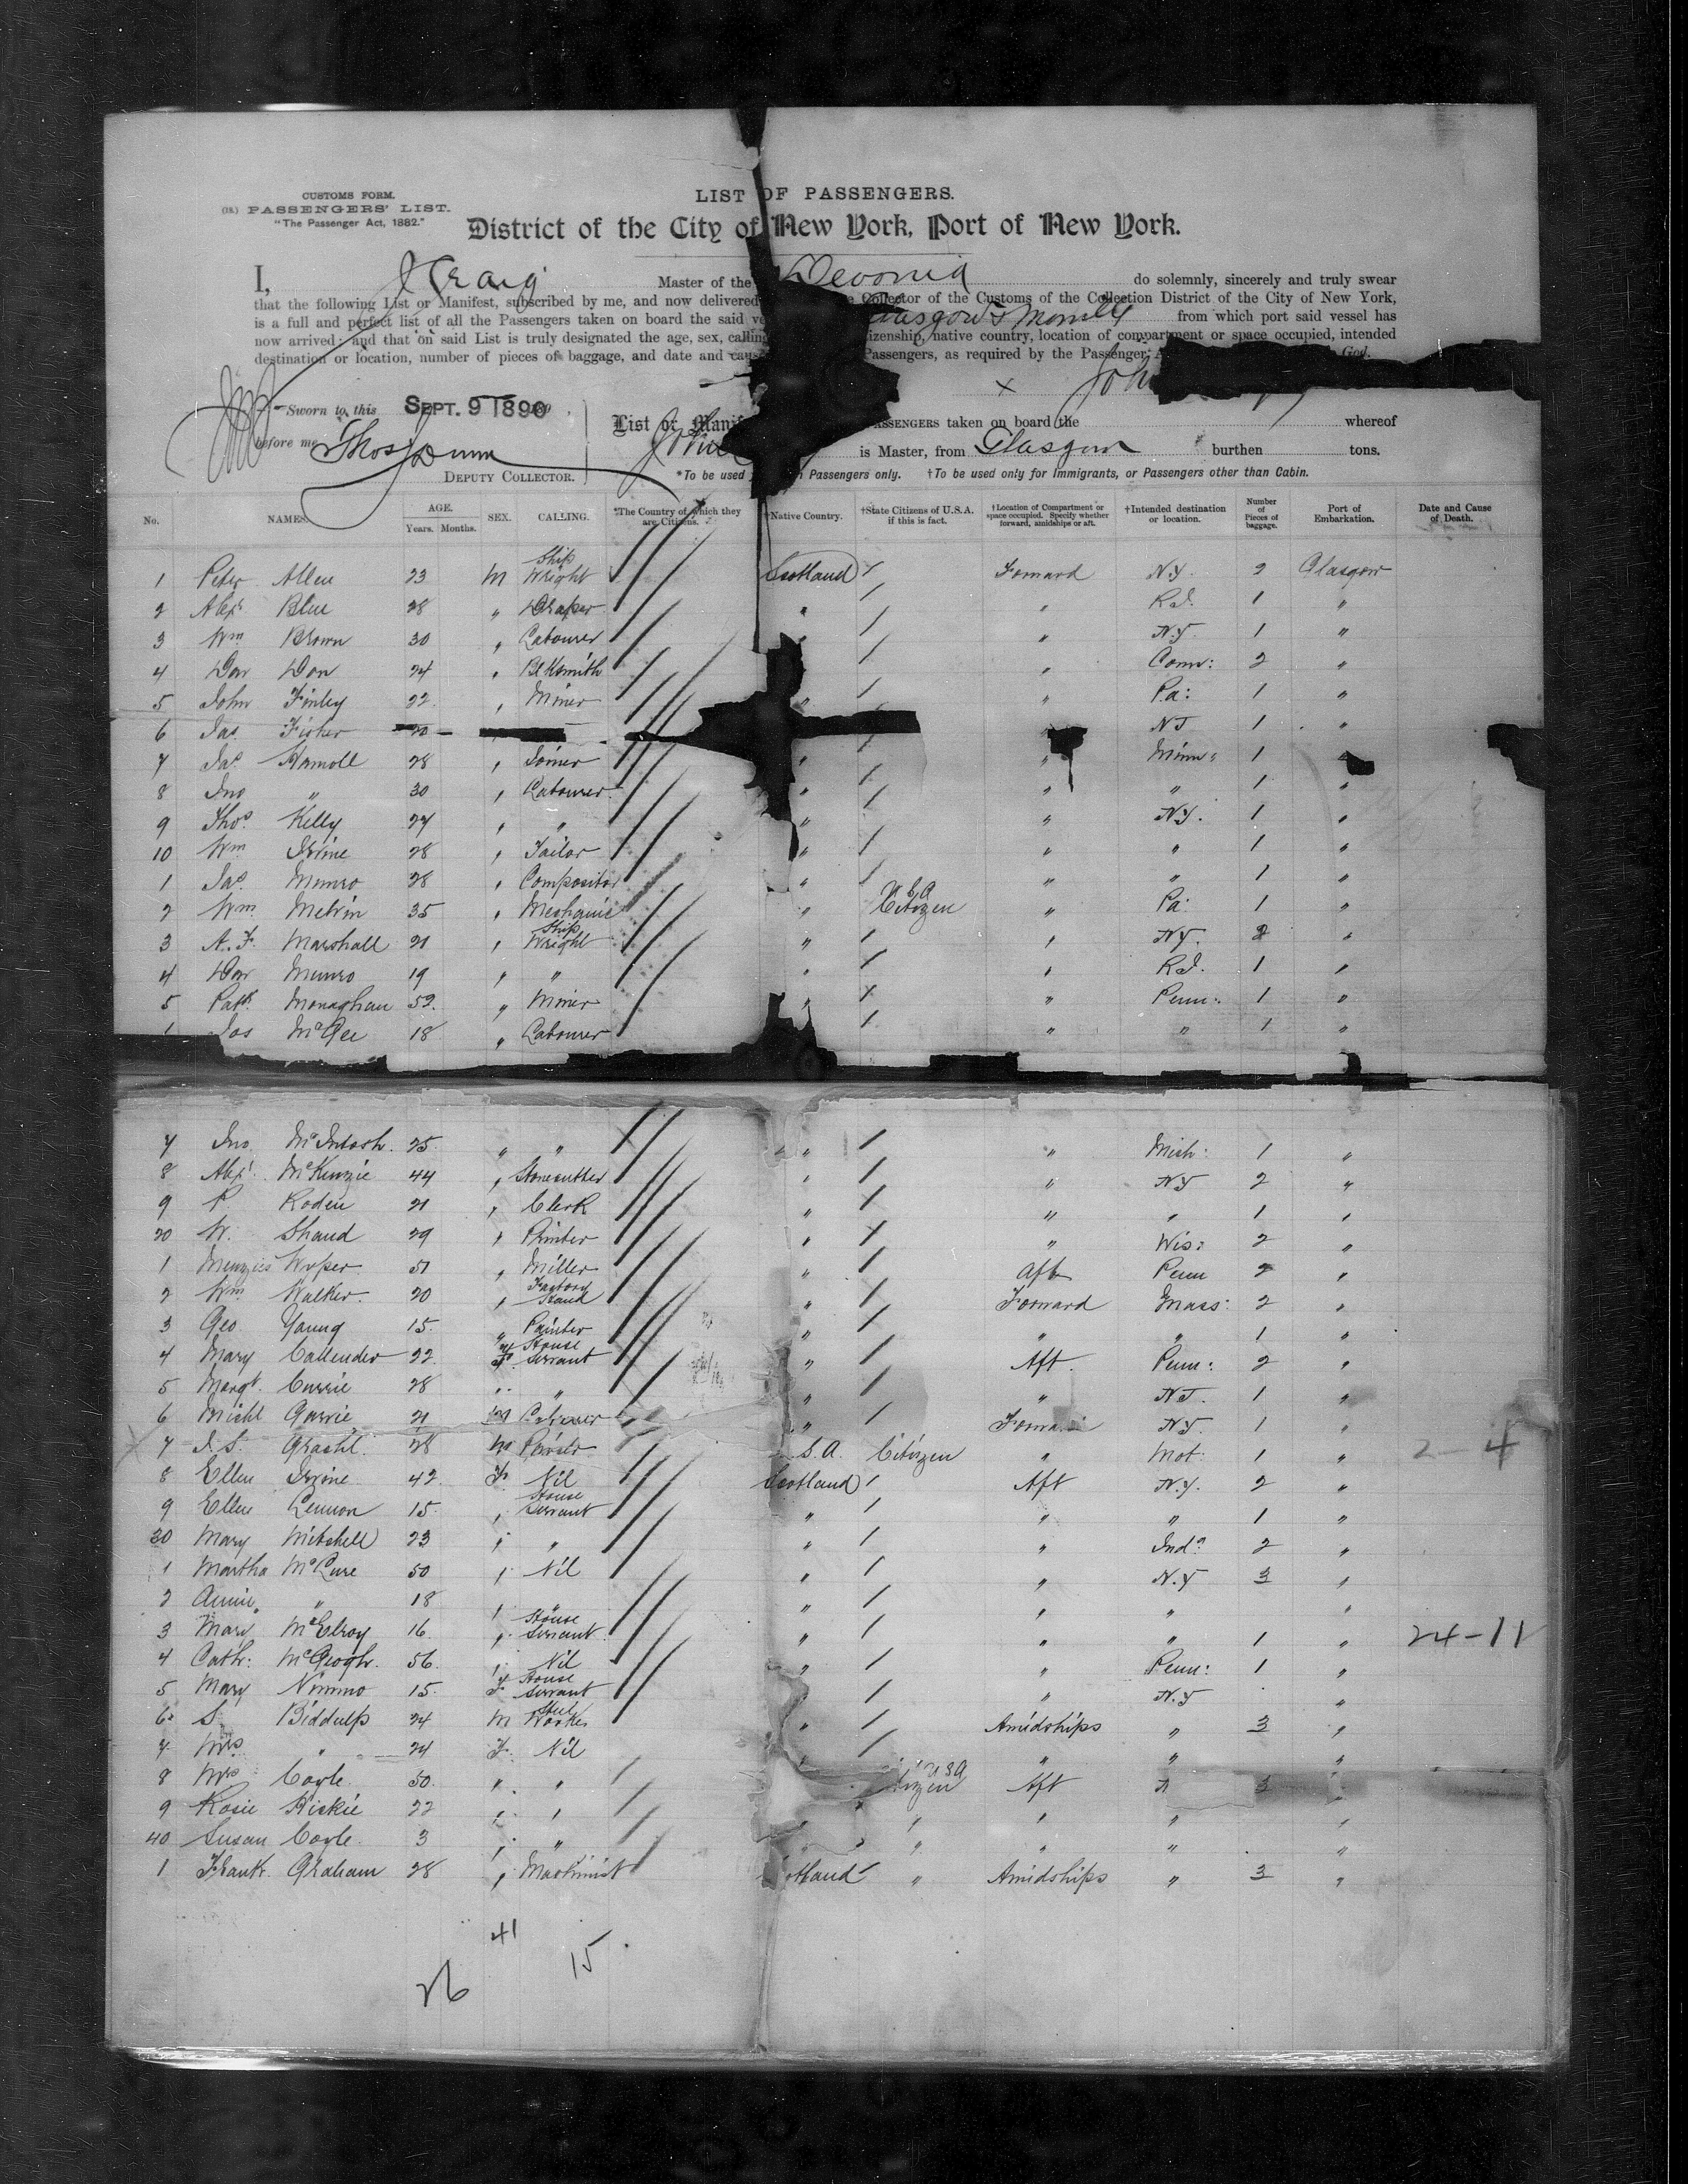 CUSTOMS FORM.
PASSENGERS' LIST.
"The Passenger Act, 1882."
LIST OF PASSENGERS.
District of the City of New York, Port of New York.
I, J Craig Master of the Devonia do solemnly, sincerely and truly swear
that the following List or Manifest, subscribed by me, and now delivered Collector of the Customs of the Collection District of the City of New York,
is a full and perfect list of all the Passengers taken on board the said Glasgow & from which port said vessel has
now arrived; and that on said List is truly designated the age, sex, calling native country, location of compartment or space occupied, intended
destination or location, number of pieces of baggage, and date and Passengers, as required by the Passenger God.
Sworn to this SEPT. 9 1890
before me Thos Dunn
DEPUTY COLLECTOR.
List or PASSENGERS taken on board the whereof
is Master, from Glasgow burthen tons.
*To be used Passengers only. †To be used only for Immigrants, or Passengers other than Cabin.
No. NAMES. AGE. Years. Months. SEX. CALLING. *The Country of which they are Citizens. Native Country. †State Citizens of U.S.A. if this is fact. †Location of Compartment or space occupied. Specify whether forward, amidships or aft. †Intended destination or location. Number of Pieces of baggage. Port of Embarkation. Date and Cause of Death.
1 Peter Allen 23 M Ship Wright Scotland / Forward N.Y. 2 Glasgow
2 Alexr Blue 28 " Draper " / " R.I. 1 "
3 Wm Brown 30 " Labourer / " N.Y. 1 "
4 Don 24 " Blksmith / " Conn: 2 "
5 John Finley 22 " Miner " / " Pa: 1 "
6 Jas Fisher 20 NJ 1 "
7 Jas 28 " Joiner " / " Minn: 1 "
8 Jno " 30 " Labourer " / " " 1 "
9 Thos Kelly 27 " " " / " N.Y. 1 "
10 Wm Irvine 28 " Tailor " / " " 1 "
1 Jas Munro 28 " Compositor " / " " 1 "
2 Wm Melvin 35 " Mechanic " U.S.A Citizen " Pa: 1 "
3 A. F. Marshall 21 " Ship Wright " / " NY. 2 "
4 Munro 19 " " " / " R.I. 1 "
5 Patk Monaghan 52 " Miner " / " Penn: 1 "
Jos McGee 18 " Labourer / " " 1 "
7 Jno McIntosh 25 " " " / " Mich: 1 "
8 Alexr McKenzie 44 " Stonecutter " / " NY 2 "
9 P. Roden 21 " Clerk " / " " 1 "
20 W. Shand 29 " Printer " / " Wis: 2 "
1 Menzies 51 " Miller " / Aft Penn 2 "
2 Wm Walker 20 " Factory Hand " / Forward Mass: 2 "
3 Geo Young 15 " Painter " / " " 1 "
4 Mary Callender 22 F House Servant " / Aft Penn: 2 "
5 Margt Currie 28 " " " / " NJ. 1 "
6 Michl Garvie 21 M Labourer " / Forward NY. 1 "
7 28 M S.A. Citizen " 1 " 2-4
8 Ellen Irvine 42 F Nil Scotland / Aft N.Y. 2 "
9 Ellen Lennon 15 " House Servant " / " " 1 "
30 Mary Mitchell 23 " " " / " Inda 2 "
1 Martha McLure 50 " Nil " / " N.Y 3 "
2 Annie " 18 " " " / " " "
3 Mary McElroy 16 " House Servant " / " " 1 " 24-11
4 Cathr: 56 " Nil " / " Penn: 1 "
5 Mary Nimmo 15 F House Servant " / " N.Y "
6 S. Biddulp 24 M Steel Worker " / Amidships " 3 "
7 Mrs " 24 F Nil " / " " "
8 Mrs Coyle 50 " " USA Aft 3
9 Rosie 22 " " " " " " "
40 Susan Coyle 3 " " " " " "
1 Frank Graham 28 " Machinist " Amidships " 3 "
41
26 15